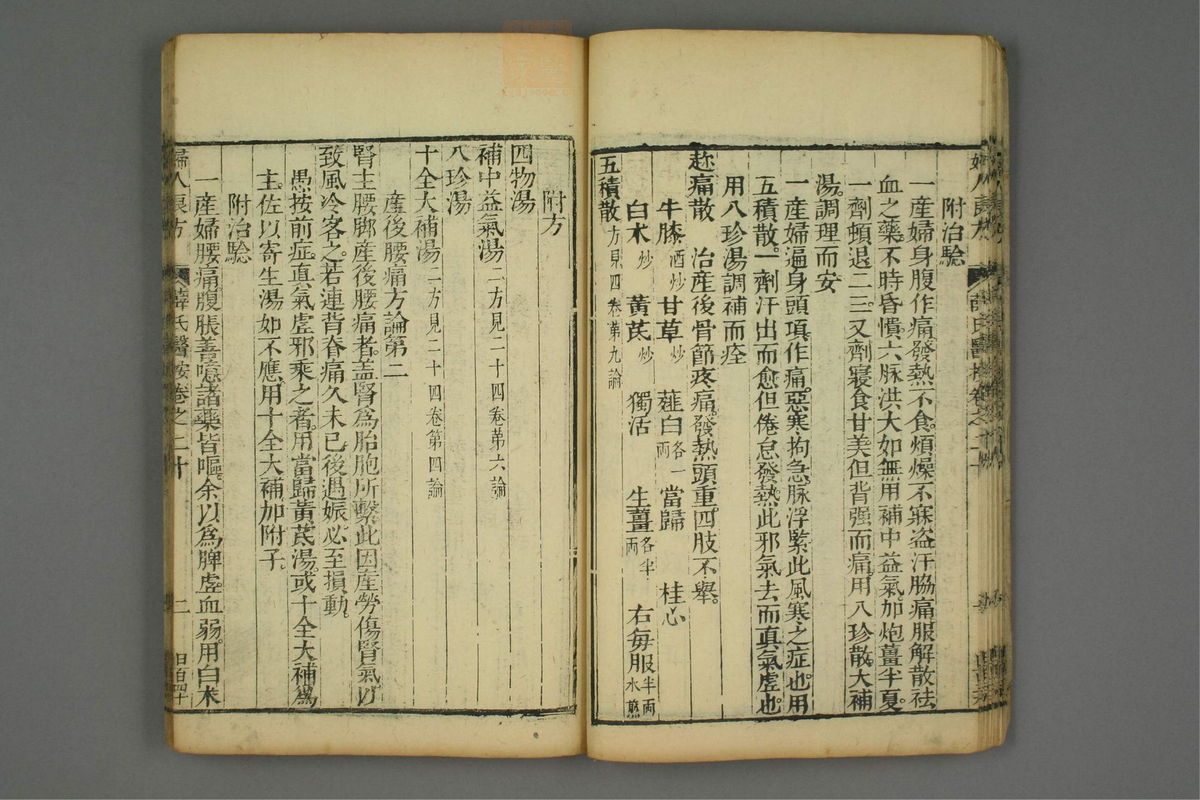 附治驗
一産婦身腹作痛發熱不食煩燥不寐盗汗脇痛服解散祛
血之藥不時昏憒六脉洪大如無用補中益氣加炮薑半夏
一劑頓退二三又劑寢食甘美但背强而痛用八珍散大補
湯調理而安
一産婦遍身頭項作痛惡寒拘急脉浮緊此風寒之症也用
五積散一劑汗出而愈但倦怠發熱此邪氣去而真氣虚也
用八珍湯調補而痊
趂痛散 治産後骨節疼痛發熱頭重四肢不舉
牛膝酒炒 甘草炒 薤白各一兩 當歸 桂心
白朮炒 黄芪炒 獨活 生薑各半兩 右每服半兩水煎
五積散方見四卷第九論
附方
四物湯
補中益氣湯二方見二十四卷第六論
八珍湯
十全大補湯二方見二十四卷第四論
産後腰痛方論第二
腎主腰脚産後腰痛者蓋腎爲胎胞所繫此因産勞傷腎氣以
致風冷客之若連背脊痛久未已後遇娠必至損動
愚按前症真氣虚邪乘之者用當歸黄芪湯或十全大補爲
主佐以寄生湯如不應用十全大補加附子
附治驗
一産婦腰痛腹脹善噫諸藥皆嘔余以爲脾虚血弱用白朮
婦人良方 薛氏醫按卷之二十 二